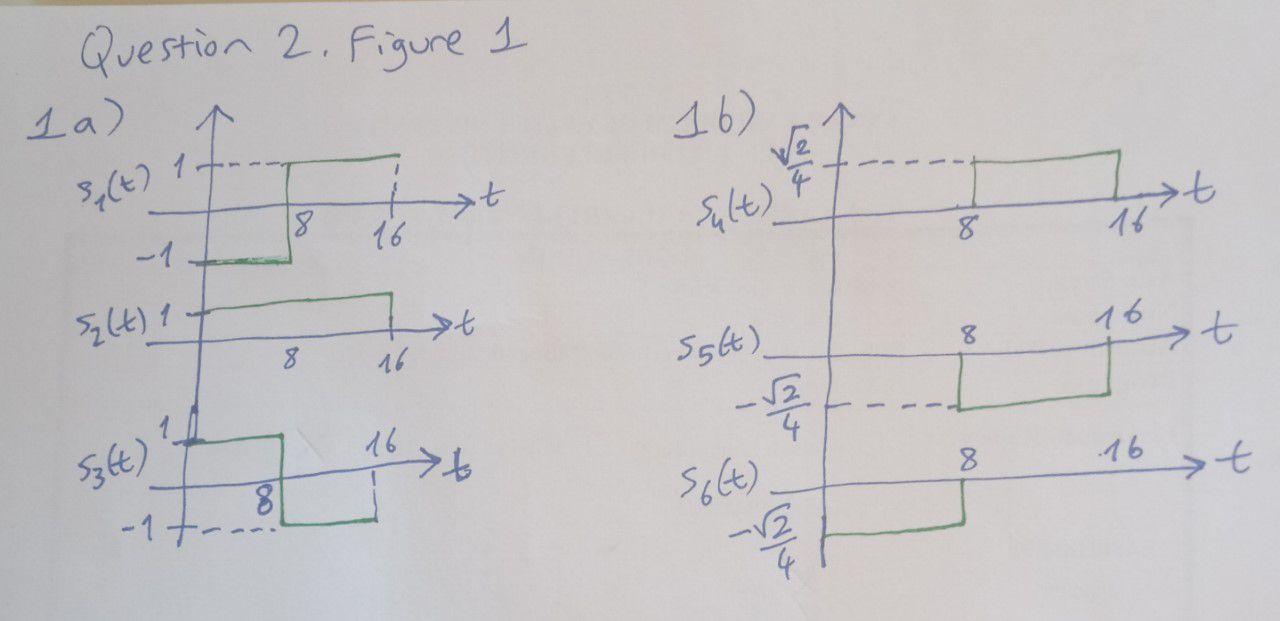 Question 2. Figure 1
1a)
1
s₁(t)
t
8
16
-1
s₂(t)
1
t
8
16
1
s₃(t)
16
t
8
-1
1b)
√2/4
s₄(t)
t
8
16
s₅(t)
8
16
t
-√2/4
s₆(t)
8
16
t
-√2/4